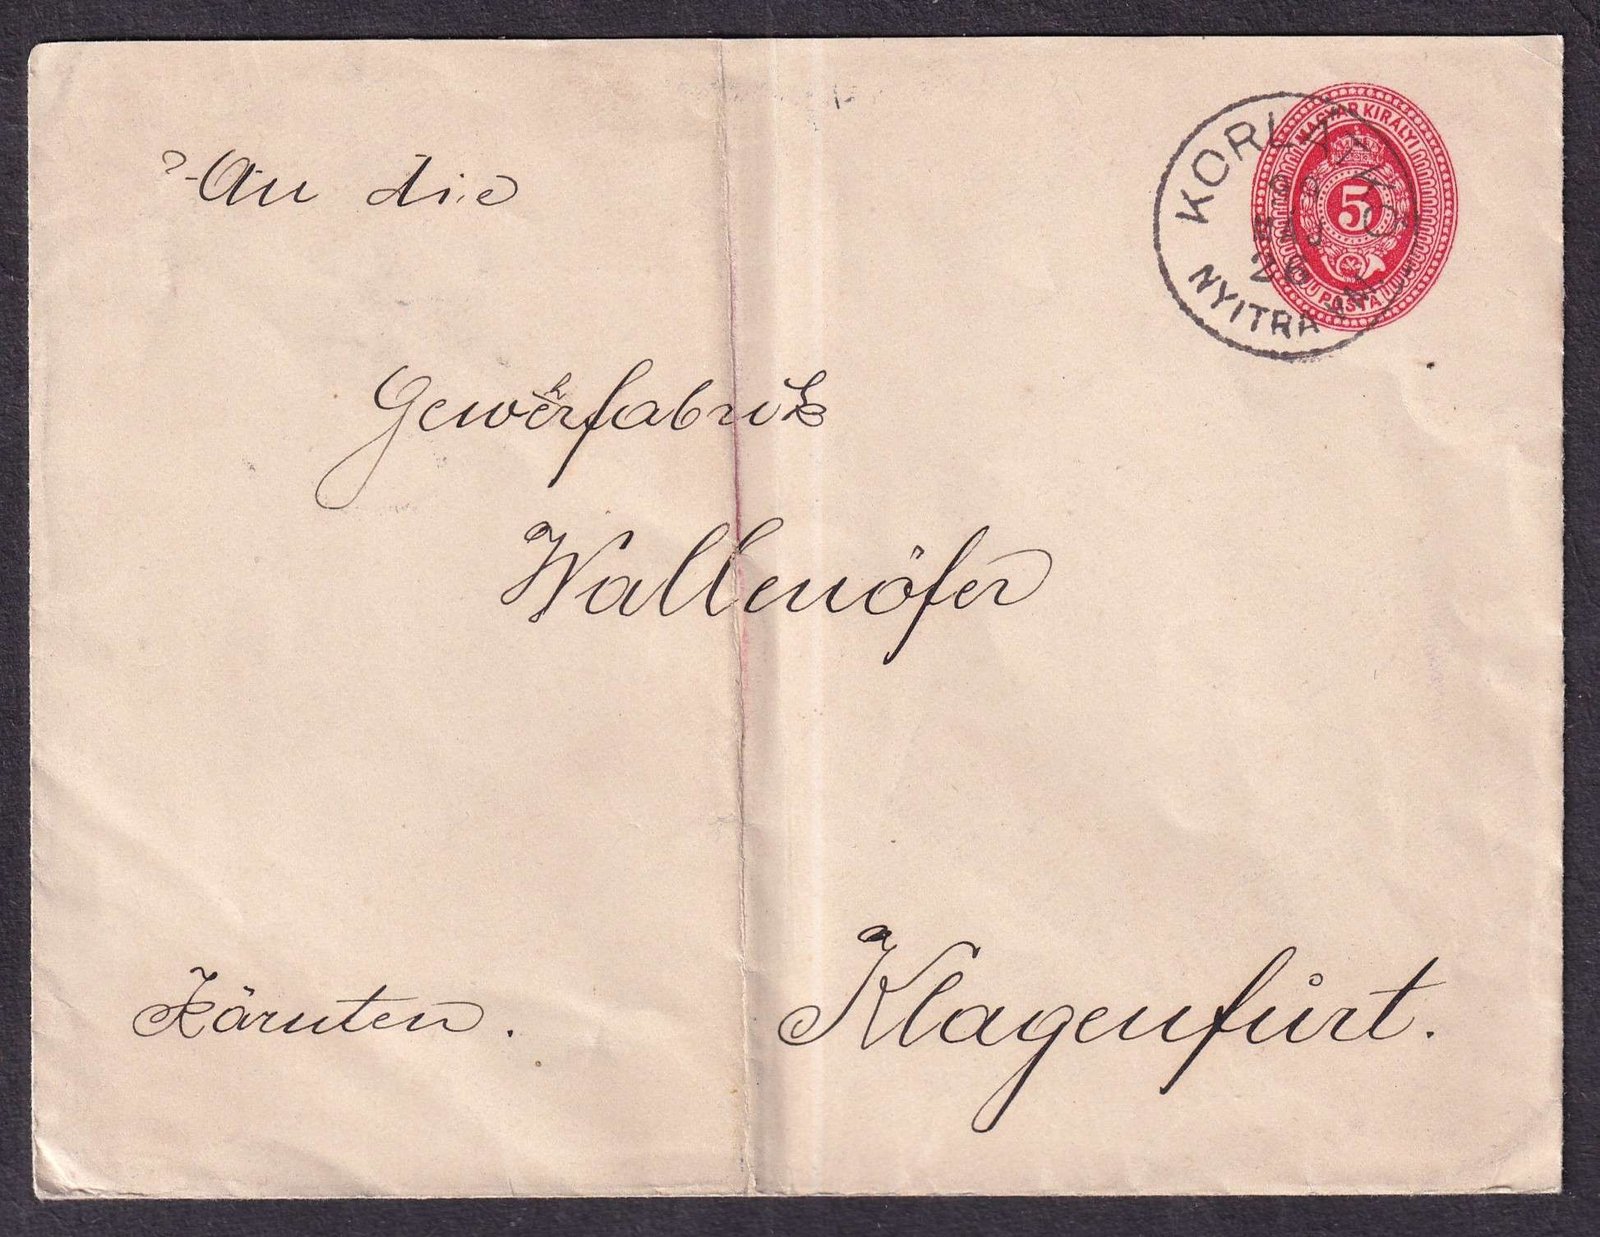 An die
Gewehrfabrik
Wallenöfer
Kärnten.
Klagenfurt.
MAGYAR KIRÁLYI
5
POSTA
NYITRA